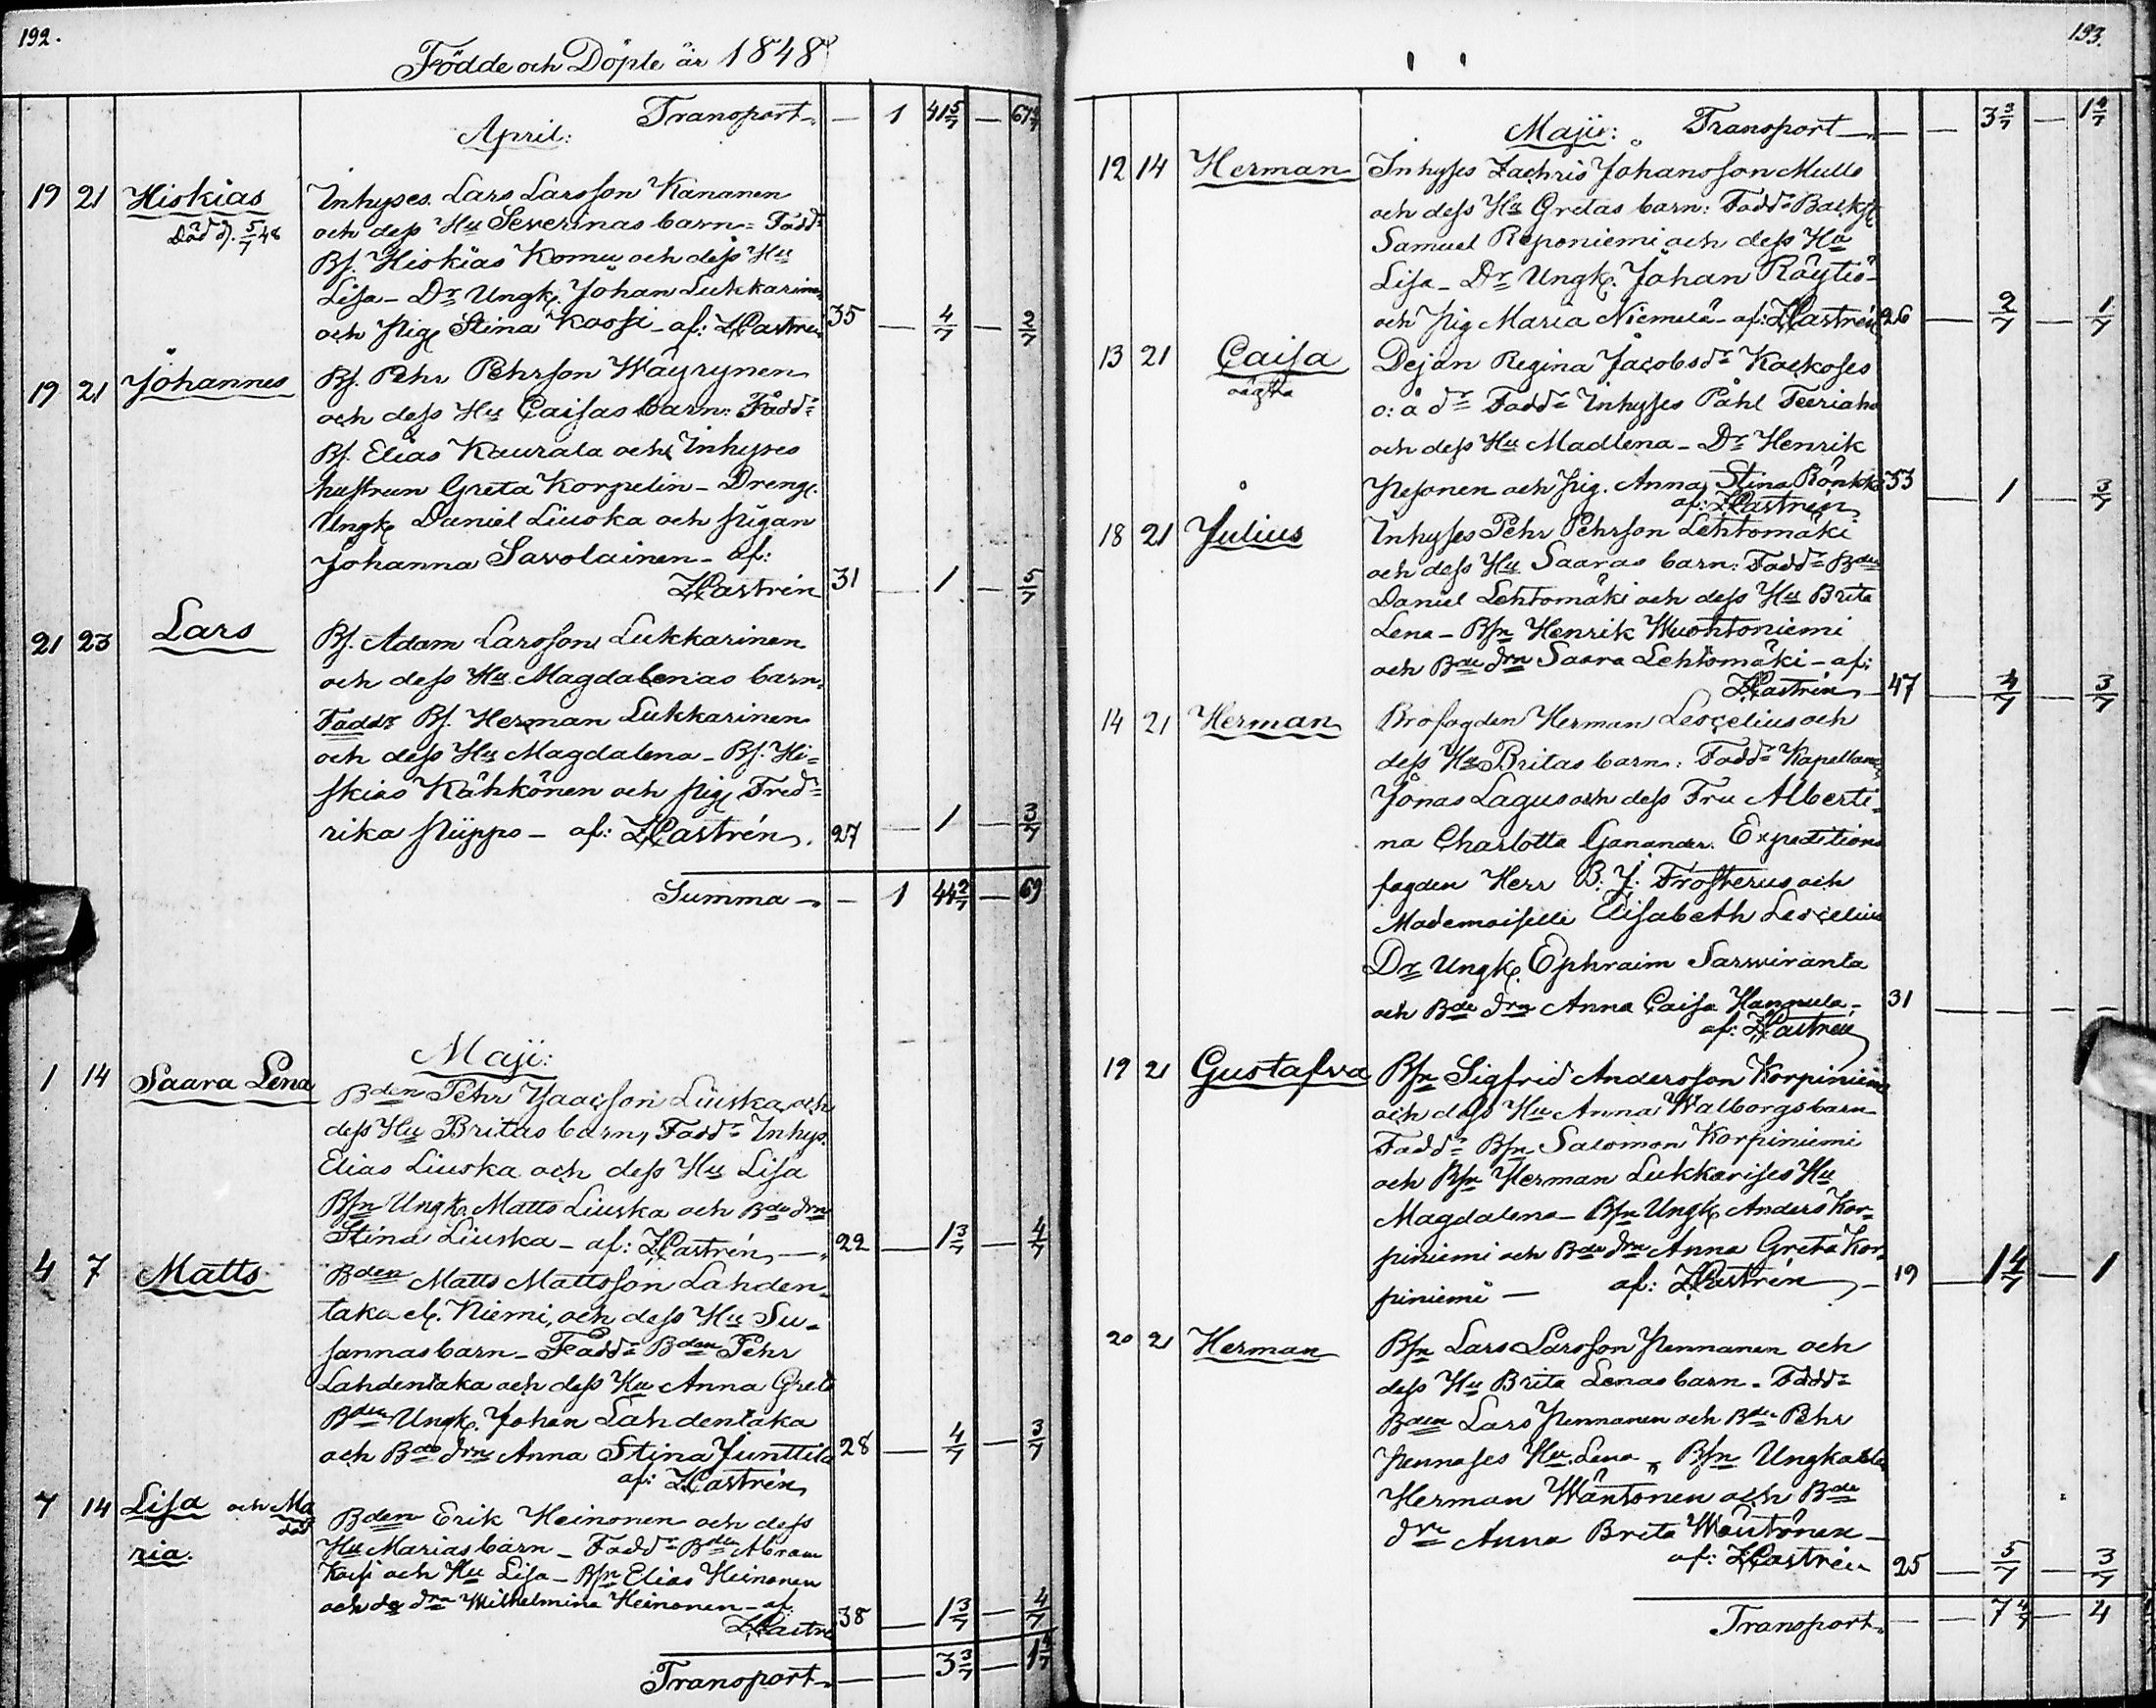 192.
Födde och Döpte år 1848
Transport — 1 41 5/7 — 67 4/7
April:
19 21 Hiskias Inhyses Lars Larsson Kananen
och dess Hu Severinas barn = Fadd:
Död d. 5/7 48
Bf. Hiskias Komu och dess Hu
Lisa - Dr Ungk. Johan Lukkarinen
och Pig Stina Kossi - af: ZCastrén 35 — 4/7 — 2/7
19 21 Johannes Bf. Pehr Pehrson Wäyrynen
och dess Hu Caisas barn: Fadd:
Bf. Elias Kaurala och Inhyses
hustrun Greta Korpelin - Dreng.
Ungk Daniel Liuska och Pigan
Johanna Savolainen - af:
ZCastrén 31 — 1 — 5/7
21 23 Lars Bf. Adam Larsson Lukkarinen
och dess Hu Magdalenas barn.
Faddr Bf. Herman Lukkarinen
och dess Hu Magdalena - Bf. Hi=
skias Kähkönen och Pig Fred=
rika Piippo - af: ZCastrén. 27 — 1 — 3/7
Summa — 1 44 2/7 — 69
Maji:
1 14 Saara Lena Bden Pehr Isacsson Liuska och
dess Hu Britas barn, Fadd: Inhys.
Elias Liuska och dess Hu Lisa
Bfn Ungk. Matts Liuska och Bde drn
Stina Liuska - af: ZCastrén 22 — 1 3/7 — 4/7
4 7 Matts Bden Matts Mattsson Lahden-
taka el. Niemi, och dess Hu Su-
sannas barn - Fadd: Bden Pehr
Lahdentaka och dess Hu Anna Greta
Bden Ungk. Johan Lahdentaka
och Bde drn Anna Stina Junttila 28 — 4/7 — 3/7
af: ZCastrén
7 14 Lisa och Ma
död
ria.
Bden Erik Heinonen och dess
Hu Marias barn - Fadd: Bden Abram
Kossi och Hu Lisa - Bfn Elias Heinonen
och de drn Wilhelmina Heinonen - af
ZCastré 38 — 1 3/7 — 4/7
Transport — 3 3/7 — 1 4/7
193.
Maji: Transport — 3 3/7 — 1 4/7
12 14 Herman Inhyses Zachris Johansson Mulls
och dess Hu Gretas barn: Fadd:
Samuel Reponiemi och dess Hu
Lisa - Dr Ungk. Johan Räytiö
och Pig Maria Niemelä - af: ZCastrén 26 — 2/7 — 1/7
13 21 Caisa Dejan Regina Jacobsdr Kackoses
oägta
o: ä dr Fadd: Inhyses Påhl Teeriaho
och dess Hu Madlena - Dr Henrik
Pesonen och Pig. Anna Stina Rönkkö 53 — 1 — 3/7
af: ZCastrén
18 21 Julius Inhyses Pehr Pehrson Lehtomäki
och dess Hu Saaras barn: Fadd: Bden
Daniel Lehtomäki och dess Hu Brita
Lena - Bfn Henrik Wuohtoniemi
och Bde drn Saara Lehtomäki - af:
ZCastrén 47 — 4/7 — 3/7
14 21 Herman Brofogden Herman Lescelius och
dess Hu Britas barn: Fadd: Kapellan
Jonas Lagus och dess Fru Alberti-
na Charlotta Ganander. Expeditions
fogden Herr B: J: Frosterus och
Mademoiselle Elisabeth Lescelius
Dr Ungk. Ephraim Sarwiranta
och Bde drn Anna Caisa Hannula - 31 — — — —
af: ZCastrén
19 21 Gustafva Bfn Sigfrid Andersson Korpiniemi
och dess Hu Anna Walborgs barn
Fadd: Bfn Salomon Korpiniemi
och Bfn Herman Lukkarises Hu
Magdalena - Bfn Ungk. Anders Kor-
piniemi och Bde drn Anna Greta Kor-
piniemi — af: ZCastrén 19 — 1 4/7 — 1
20 21 Herman Bfn Lars Larsson Pennanen och
dess Hu Brita Lenas barn - Fadd:
Bden Lars Pennanen och Bde Pehr
Pennases Hu Lena - Bfn Ungkarlen
Herman Wäntönen och Bde
drn Anna Brita Wäntönen -
af: ZCastrén 25 — 5/7 — 3/7
Transport — 7 4/7 — 4